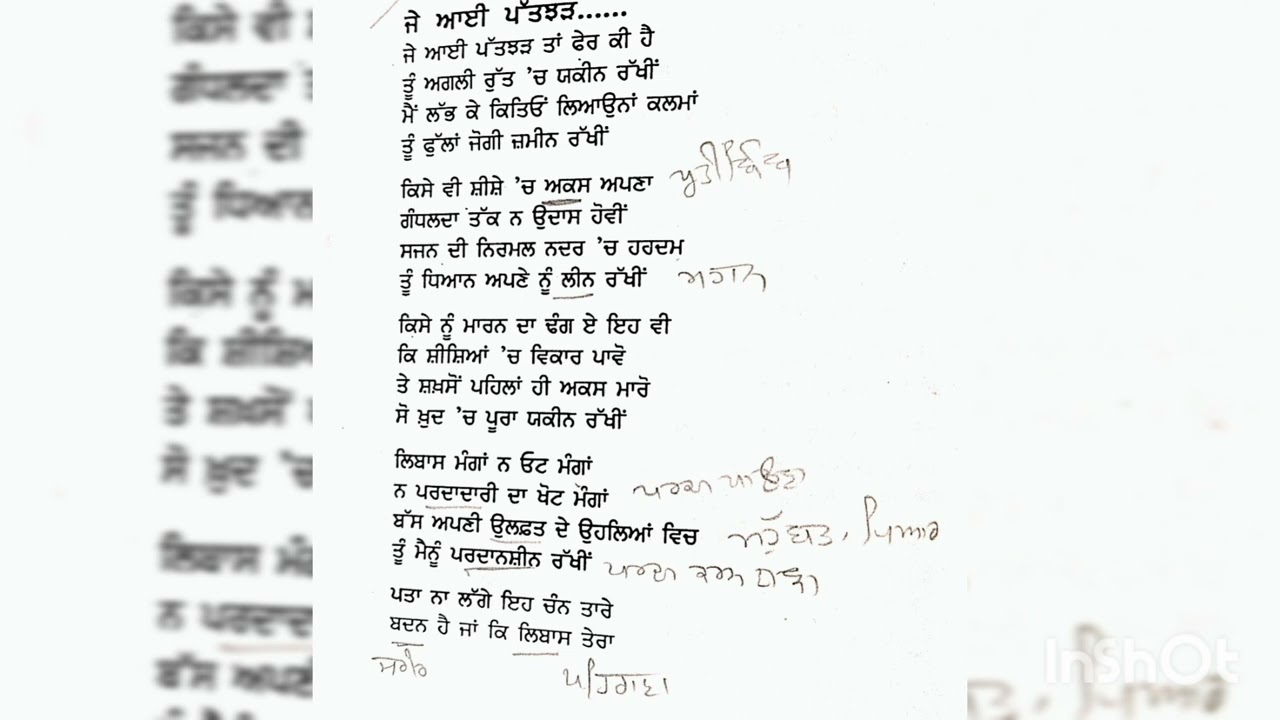 ਜੇ ਆਈ ਪੱਤਝੜ......
ਜੇ ਆਈ ਪੱਤਝੜ ਤਾਂ ਫੇਰ ਕੀ ਹੈ
ਤੂੰ ਅਗਲੀ ਰੁੱਤ 'ਚ ਯਕੀਨ ਰੱਖੀਂ
ਮੈਂ ਲੱਭ ਕੇ ਕਿਤਿਓਂ ਲਿਆਉਨਾਂ ਕਲਮਾਂ
ਤੂੰ ਫੁੱਲਾਂ ਜੋਗੀ ਜ਼ਮੀਨ ਰੱਖੀਂ
ਕਿਸੇ ਵੀ ਸ਼ੀਸ਼ੇ 'ਚ ਅਕਸ ਅਪਣਾ
ਗੰਧਲਦਾ ਤੱਕ ਨ ਉਦਾਸ ਹੋਵੀਂ
ਸਜਨ ਦੀ ਨਿਰਮਲ ਨਦਰ 'ਚ ਹਰਦਮ
ਤੂੰ ਧਿਆਨ ਅਪਣੇ ਨੂੰ ਲੀਨ ਰੱਖੀਂ ਮਗਨ
ਕਿਸੇ ਨੂੰ ਮਾਰਨ ਦਾ ਢੰਗ ਏ ਇਹ ਵੀ
ਕਿ ਸ਼ੀਸ਼ਿਆਂ 'ਚ ਵਿਕਾਰ ਪਾਵੋ
ਤੇ ਸ਼ਖ਼ਸੋਂ ਪਹਿਲਾਂ ਹੀ ਅਕਸ ਮਾਰੋ
ਸੋ ਖ਼ੁਦ 'ਚ ਪੂਰਾ ਯਕੀਨ ਰੱਖੀਂ
ਲਿਬਾਸ ਮੰਗਾਂ ਨ ਓਟ ਮੰਗਾਂ
ਨ ਪਰਦਾਦਾਰੀ ਦਾ ਖੋਟ ਮੰਗਾਂ
ਬੱਸ ਅਪਣੀ ਉਲਫ਼ਤ ਦੇ ਉਹਲਿਆਂ ਵਿਚ ਮੁਹੱਬਤ, ਪਿਆਰ
ਤੂੰ ਮੈਨੂੰ ਪਰਦਾਨਸ਼ੀਨ ਰੱਖੀਂ ਪਰਦਾ ਕਰਨ
ਪਤਾ ਨਾ ਲੱਗੇ ਇਹ ਚੰਨ ਤਾਰੇ
ਬਦਨ ਹੈ ਜਾਂ ਕਿ ਲਿਬਾਸ ਤੇਰਾ
ਸਰੀਰ ਪਹਿਰਾਵਾ
InShOt